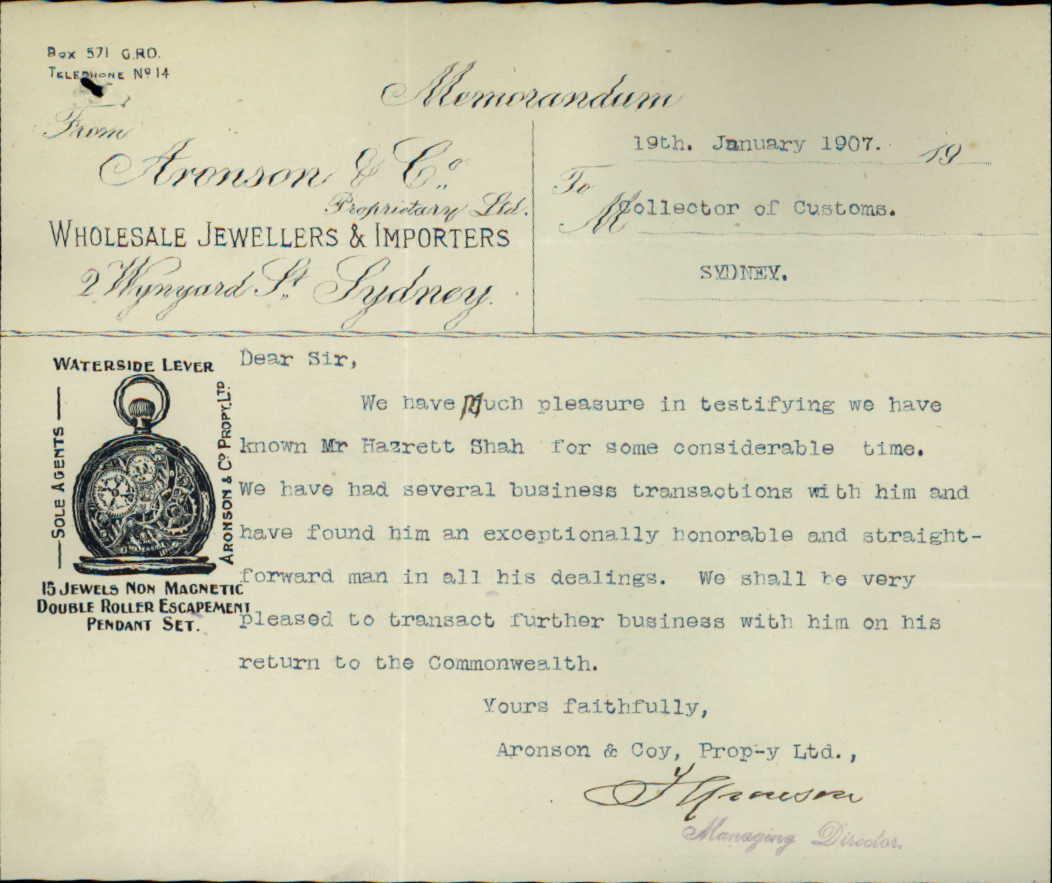 Box 571 G.P.O.
Telephone No 14
Memorandum
From
Aronson & Co.
Proprietary Ltd.
Wholesale Jewellers & Importers
2 Wynyard St. Sydney.
19th. January 1907. 19
To
M Collector of Customs.
SYDNEY.
Waterside Lever
Sole Agents
Aronson & Co Propy. Ltd.
15 Jewels Non Magnetic
Double Roller Escapement
Pendant Set.
Dear Sir,
We have Much pleasure in testifying we have
known Mr Hazrett Shah for some considerable time.
We have had several business transactions with him and
have found him an exceptionally honorable and straight-
forward man in all his dealings. We shall be very
pleased to transact further business with him on his
return to the Commonwealth.
Yours faithfully,
Aronson & Coy, Prop-y Ltd.,
F Aronson
Managing Director.